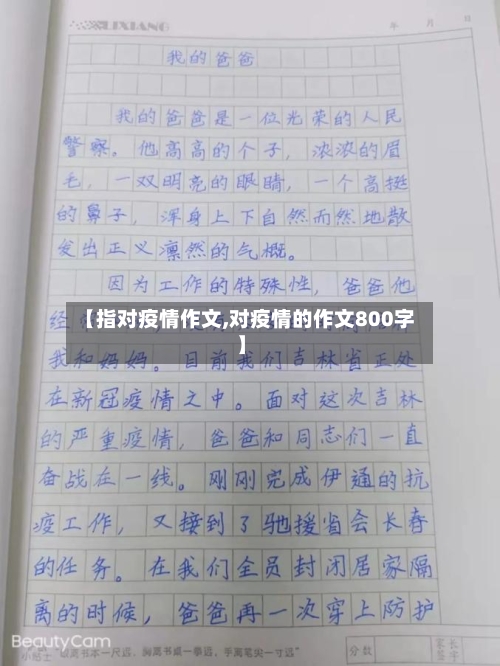 LIXIANG
年 月 日
我的爸爸
我的爸爸是一位光荣的人民
警察。他高高的个子，浓浓的眉
毛，一双明亮的眼睛，一个高挺
的鼻子，浑身上下自然而然地散
发出正义凛然的气概。
因为工作的特殊性，爸爸他
经
【指对疫情作文,对疫情的作文800字
】
我和妈妈。目前我们吉林省正处
在新冠疫情之中。面对这次吉林
的严重疫情，爸爸和同志们一直
奋战在一线。刚刚完成伊通的抗
疫工作，又接到了驰援省会长春
的任务。在我们全员封闭居家隔
离的时候，爸爸再一次穿上防护
BeautyCam
小贴士 "眼离书本一尺远，胸离书桌一拳远，手离笔尖一寸远"
分数
家长
签字